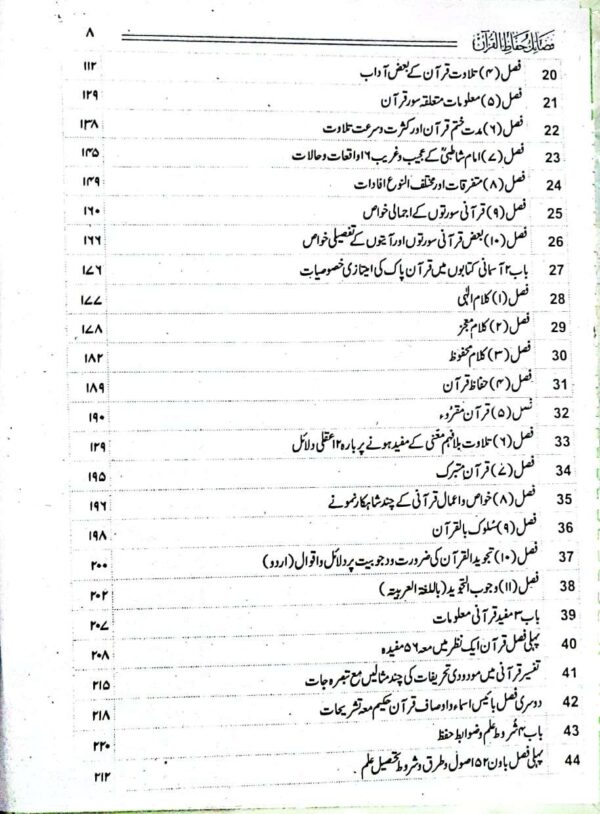 فضائل حفاظ القرآن ۸
20 فصل (۴) تلاوت قرآن کے بعض آداب ۱۱۲
21 فصل (۵) معلومات متعلقہ سور قرآن ۱۲۹
22 فصل (۶) مدت ختم قرآن اور کثرت و سرعت تلاوت ۱۳۸
23 فصل (۷) امام شاطبیؒ کے عجیب و غریب ۱۶ واقعات و حالات ۱۴۵
24 فصل (۸) متفرقات اور مختلف النوع افادات ۱۴۹
25 فصل (۹) قرآنی سورتوں کے اجمالی خواص ۱۶۰
26 فصل (۱۰) بعض قرآنی سورتوں اور آیتوں کے تفصیلی خواص ۱۶۶
27 باب ۲ آسمانی کتابوں میں قرآن پاک کی امتیازی خصوصیات ۱۷۶
28 فصل (۱) کلام الٰہی ۱۷۷
29 فصل (۲) کلام معجز ۱۷۸
30 فصل (۳) کلام محفوظ ۱۸۲
31 فصل (۴) حفاظ قرآن ۱۸۹
32 (۵) قرآن مقروء ۱۹۰
33 فصل (۶) تلاوت بلافہم معنٰی کے مفید ہونے پر بارہ ۱۲ عقلی دلائل ۱۲۹
34 فصل (۷) قرآن متبرک ۱۹۵
35 فصل (۸) خواص و اعمال قرآنی کے چند شاہکار نمونے ۱۹۶
36 فصل (۹) سُلوک بالقرآن ۱۹۸
37 فصل (۱۰) تجوید القرآن کی ضرورت ودجوبیت پر دلائل و اقوال (اردو) ۲۰۰
38 فصل (۱۱) وجوب التجوید (باللغۃ العربیتہ) ۲۰۲
39 باب ۳ مفید قرآنی معلومات ۲۰۷
40 پہلی فصل قرآن ایک نظر میں معہ ۵۶ مفیدہ ۲۰۸
41 تفسیر قرآنی میں مودودی تحریفات کی چند مثالیں مع تبصرہ جات ۲۱۵
42 دوسری فصل بائیس اسماء و اوصاف قرآن حکیم معہ تشریحات ۲۱۸
43 باب ۴ شروط علم و ضوابط حفظ ۲۲۰
44 پہلی فصل باون ۵۲ اصول و طرق و شروط تحصیل علم ۲۱۲